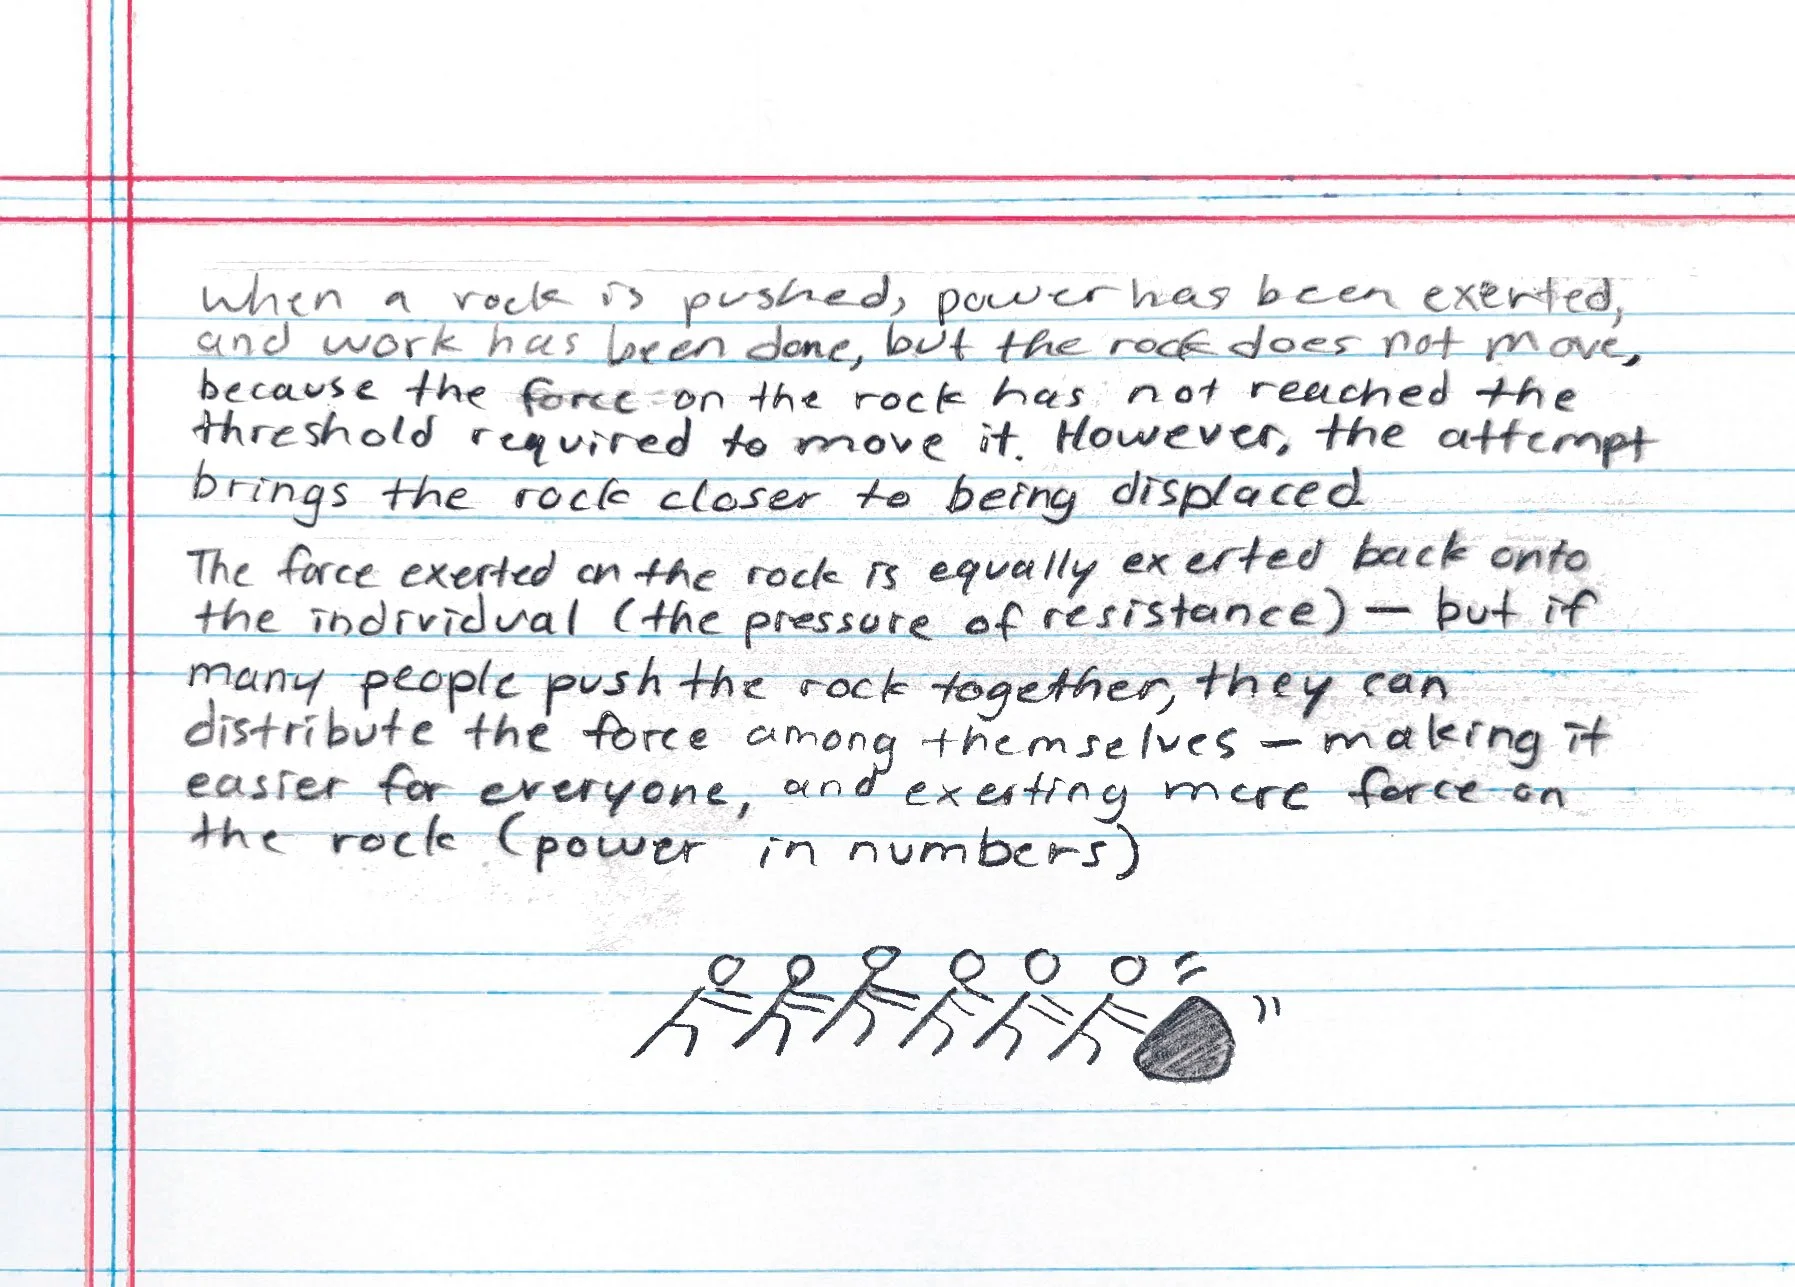 When a rock is pushed, power has been exerted,
and work has been done, but the rock does not move,
because the force on the rock has not reached the
threshold required to move it. However, the attempt
brings the rock closer to being displaced
The force exerted on the rock is equally exerted back onto
the individual (the pressure of resistance) — but if
many people push the rock together, they can
distribute the force among themselves — making it
easier for everyone, and exerting more force on
the rock (power in numbers)